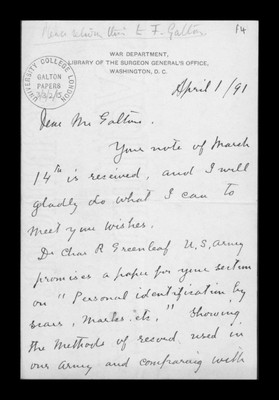 Please return this to F. Galton
14
WAR DEPARTMENT,
LIBRARY OF THE SURGEON GENERAL'S OFFICE,
WASHINGTON, D. C.
UNIVERSITY COLLEGE LONDON
GALTON
PAPERS
April 1/91
Dear Mr Galton.
Your note of March
14th is received, and I will
gladly do what I can to
meet your wishes.
Dr Chas R Greenleaf U.S. Army
promises a paper for your section
on "Personal identification by
scars, marks. etc," showing
the methods of record used in
our Army and comparing with